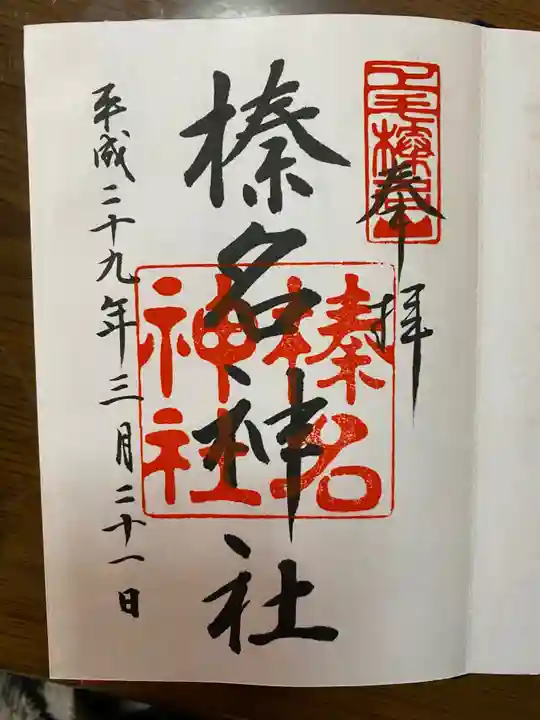 奉拝
榛名神社
榛名神社
平成二十九年三月二十一日